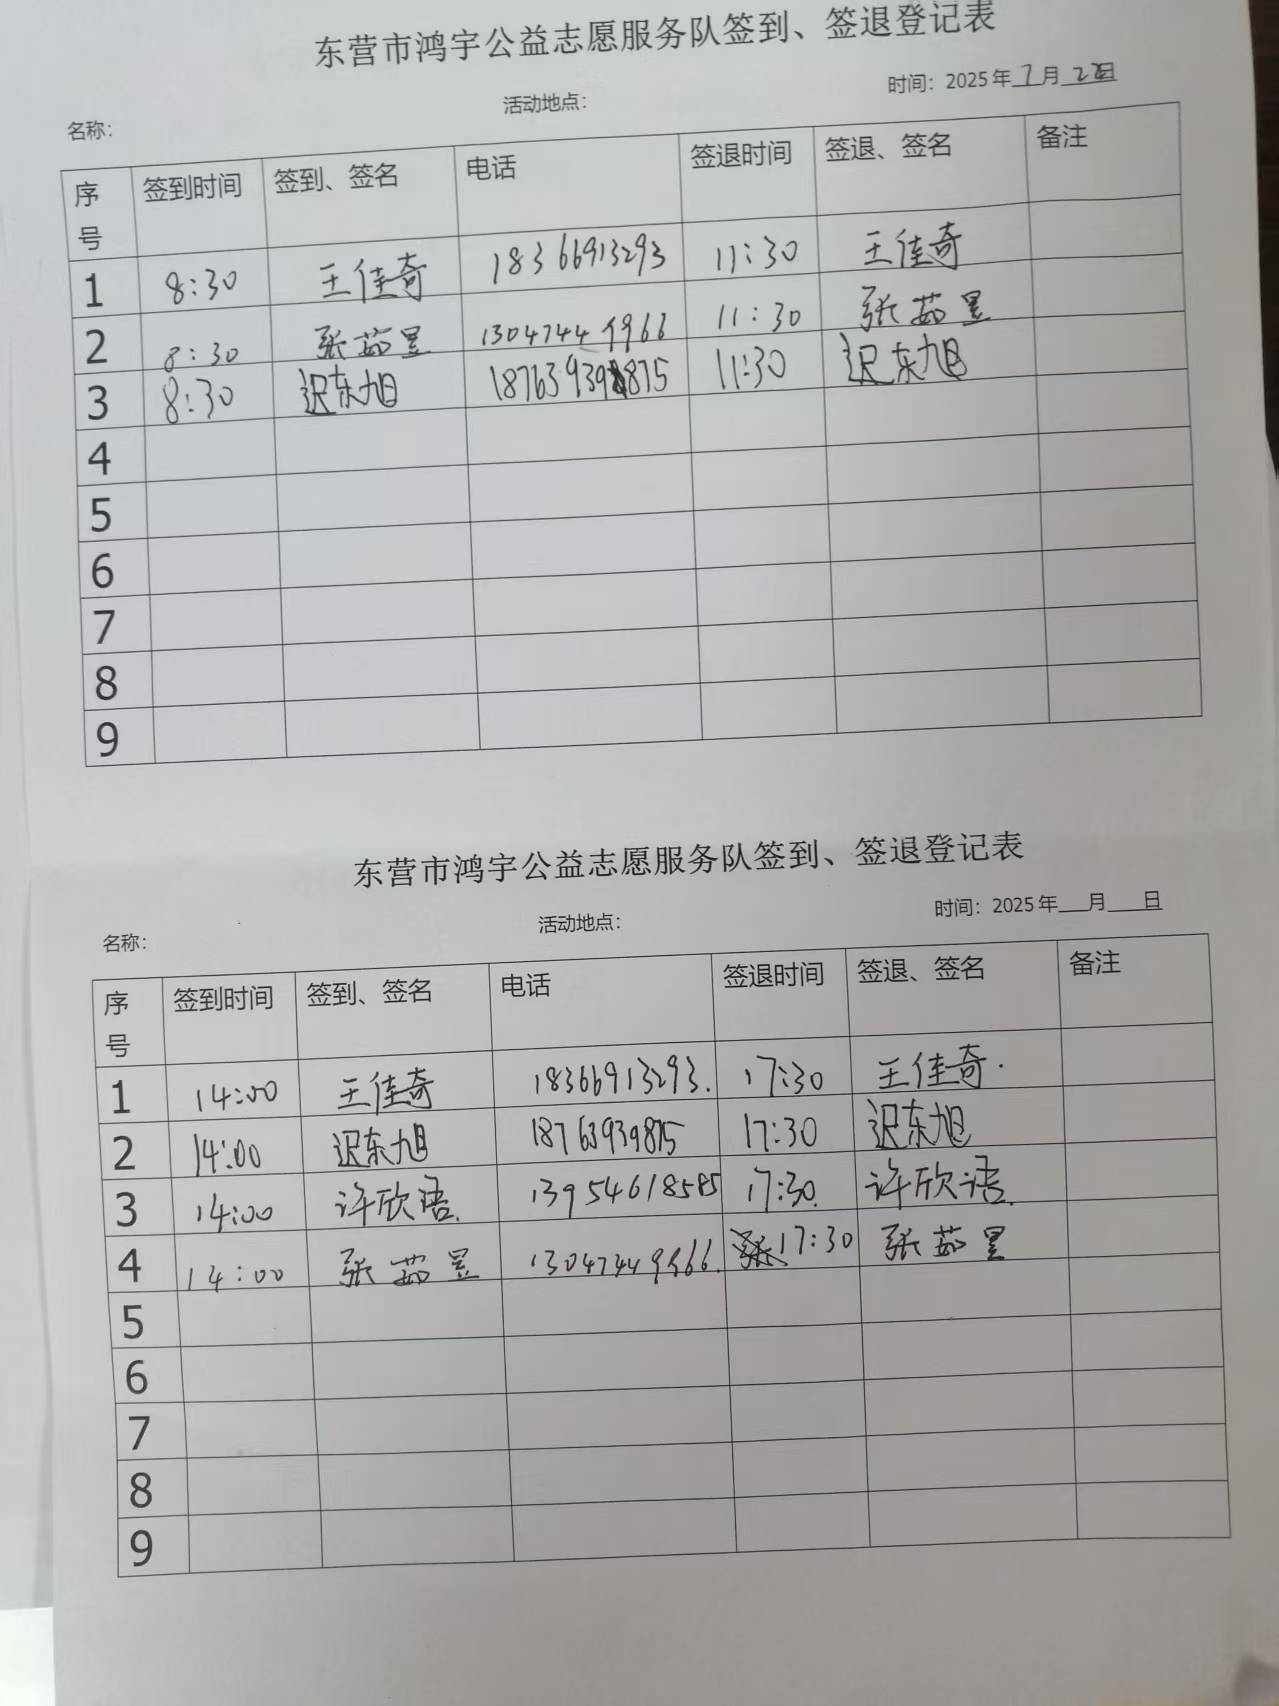 东营市鸿宇公益志愿服务队签到、签退登记表
名称： 活动地点： 时间：2025年7月22日
序号 签到时间 签到、签名 电话 签退时间 签退、签名 备注
1 8:30 王佳奇 18366913293 11:30 王佳奇
2 8:30 张茹昱 11:30 张茹昱
3 8:30 迟东旭 11:30 迟东旭
4
5
6
7
8
9
东营市鸿宇公益志愿服务队签到、签退登记表
名称： 活动地点： 时间：2025年___月___日
序号 签到时间 签到、签名 电话 签退时间 签退、签名 备注
1 14:00 王佳奇 18366913293. 17:30 王佳奇.
2 14:00 迟东旭 18763939875 17:30 迟东旭
3 14:00 许欣语. 13954618585 17:30. 许欣语.
4 14:00 张茹昱 17:30 张茹昱
5
6
7
8
9